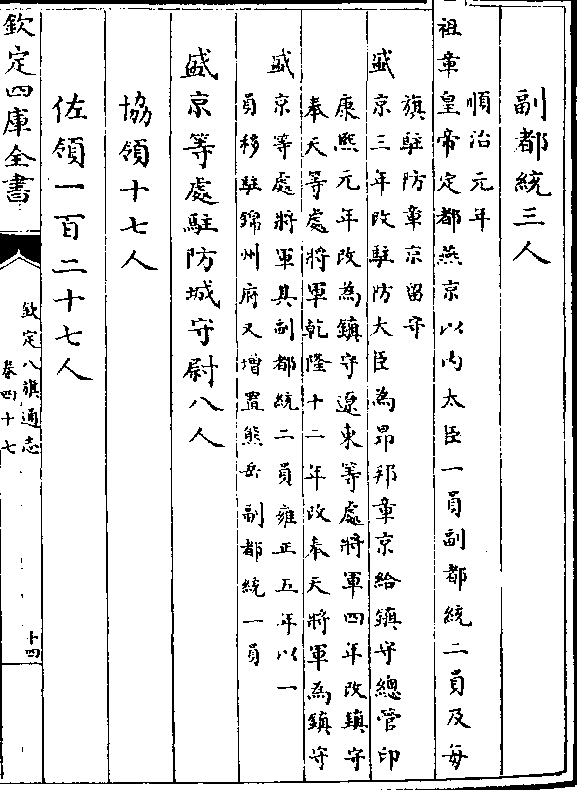 副都統三人
順治元年
祖章皇帝定都燕京以内大臣一員副都統二員及每
旗駐防章京留守
盛京三年改駐防大臣為昂邦章京給鎮守總管印
康熙元年改為鎮守遼東等處將軍四年改鎮守
奉天等處將軍乾隆十二年改奉天將軍為鎮守
盛京等處將軍其副都統二員雍正五年以一
員移駐錦州府又增置熊岳副都統一員
盛京等處駐防城守尉八人
協領十七人
佐領一百二十七人
欽定四庫全書
欽定八旗通志
卷四十七
十四